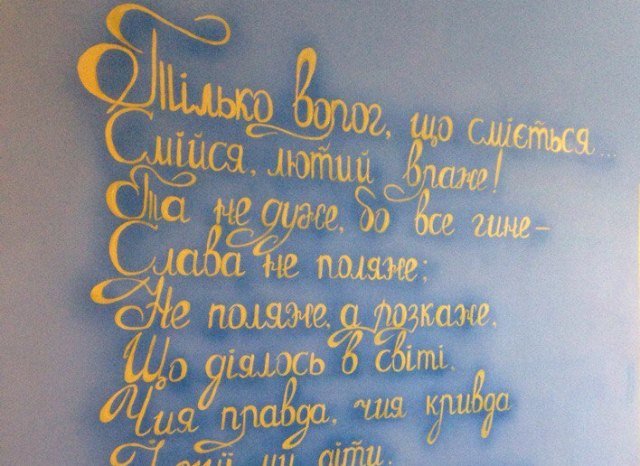 Тілько ворог, що сміється...
Смійся, лютий враже!
Та не дуже, бо все гине –
Слава не поляже;
Не поляже, а розкаже,
Що діялось в світі,
Чия правда, чия кривда
І чиї ми діти.